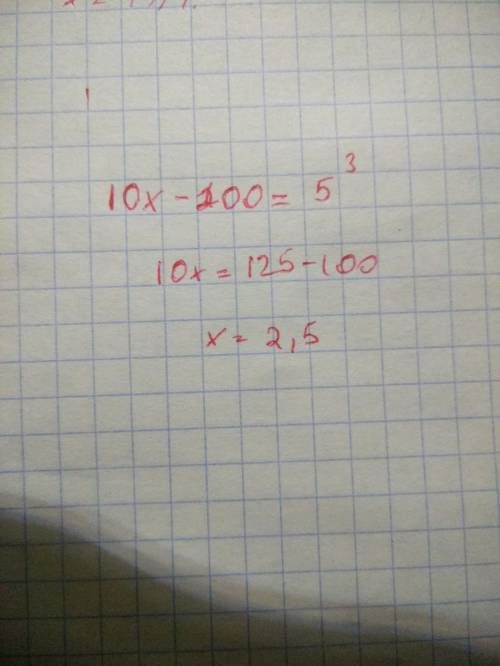 10x - 100 = 5³
10x = 125 - 100
x = 2,5